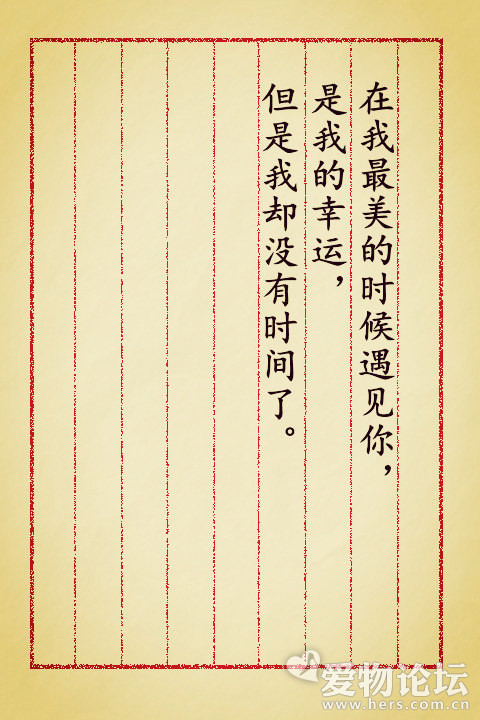 在我最美的时候遇见你，
是我的幸运，
但是我却没有时间了。
爱物论坛
www.hers.com.cn